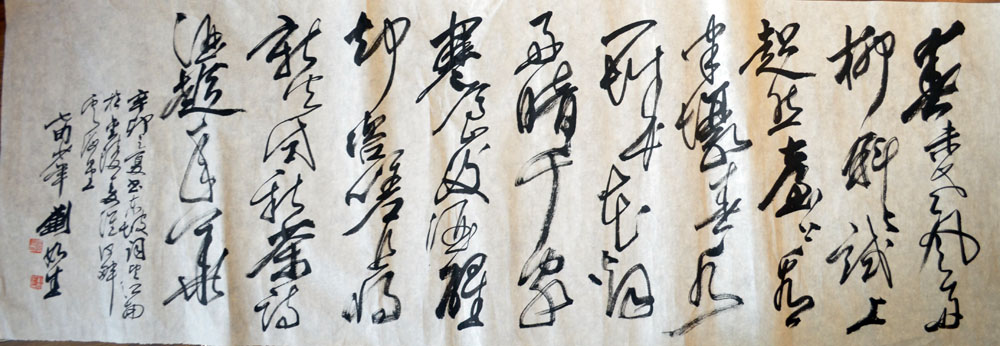 春未老风细
柳斜斜试上
超然台上看
半壕春水
一城花烟
雨暗千家
寒食后酒醒
却咨嗟且将
新火试新茶诗
酒趁年华
辛卯之夏书东坡词望江南
于金陵
刘